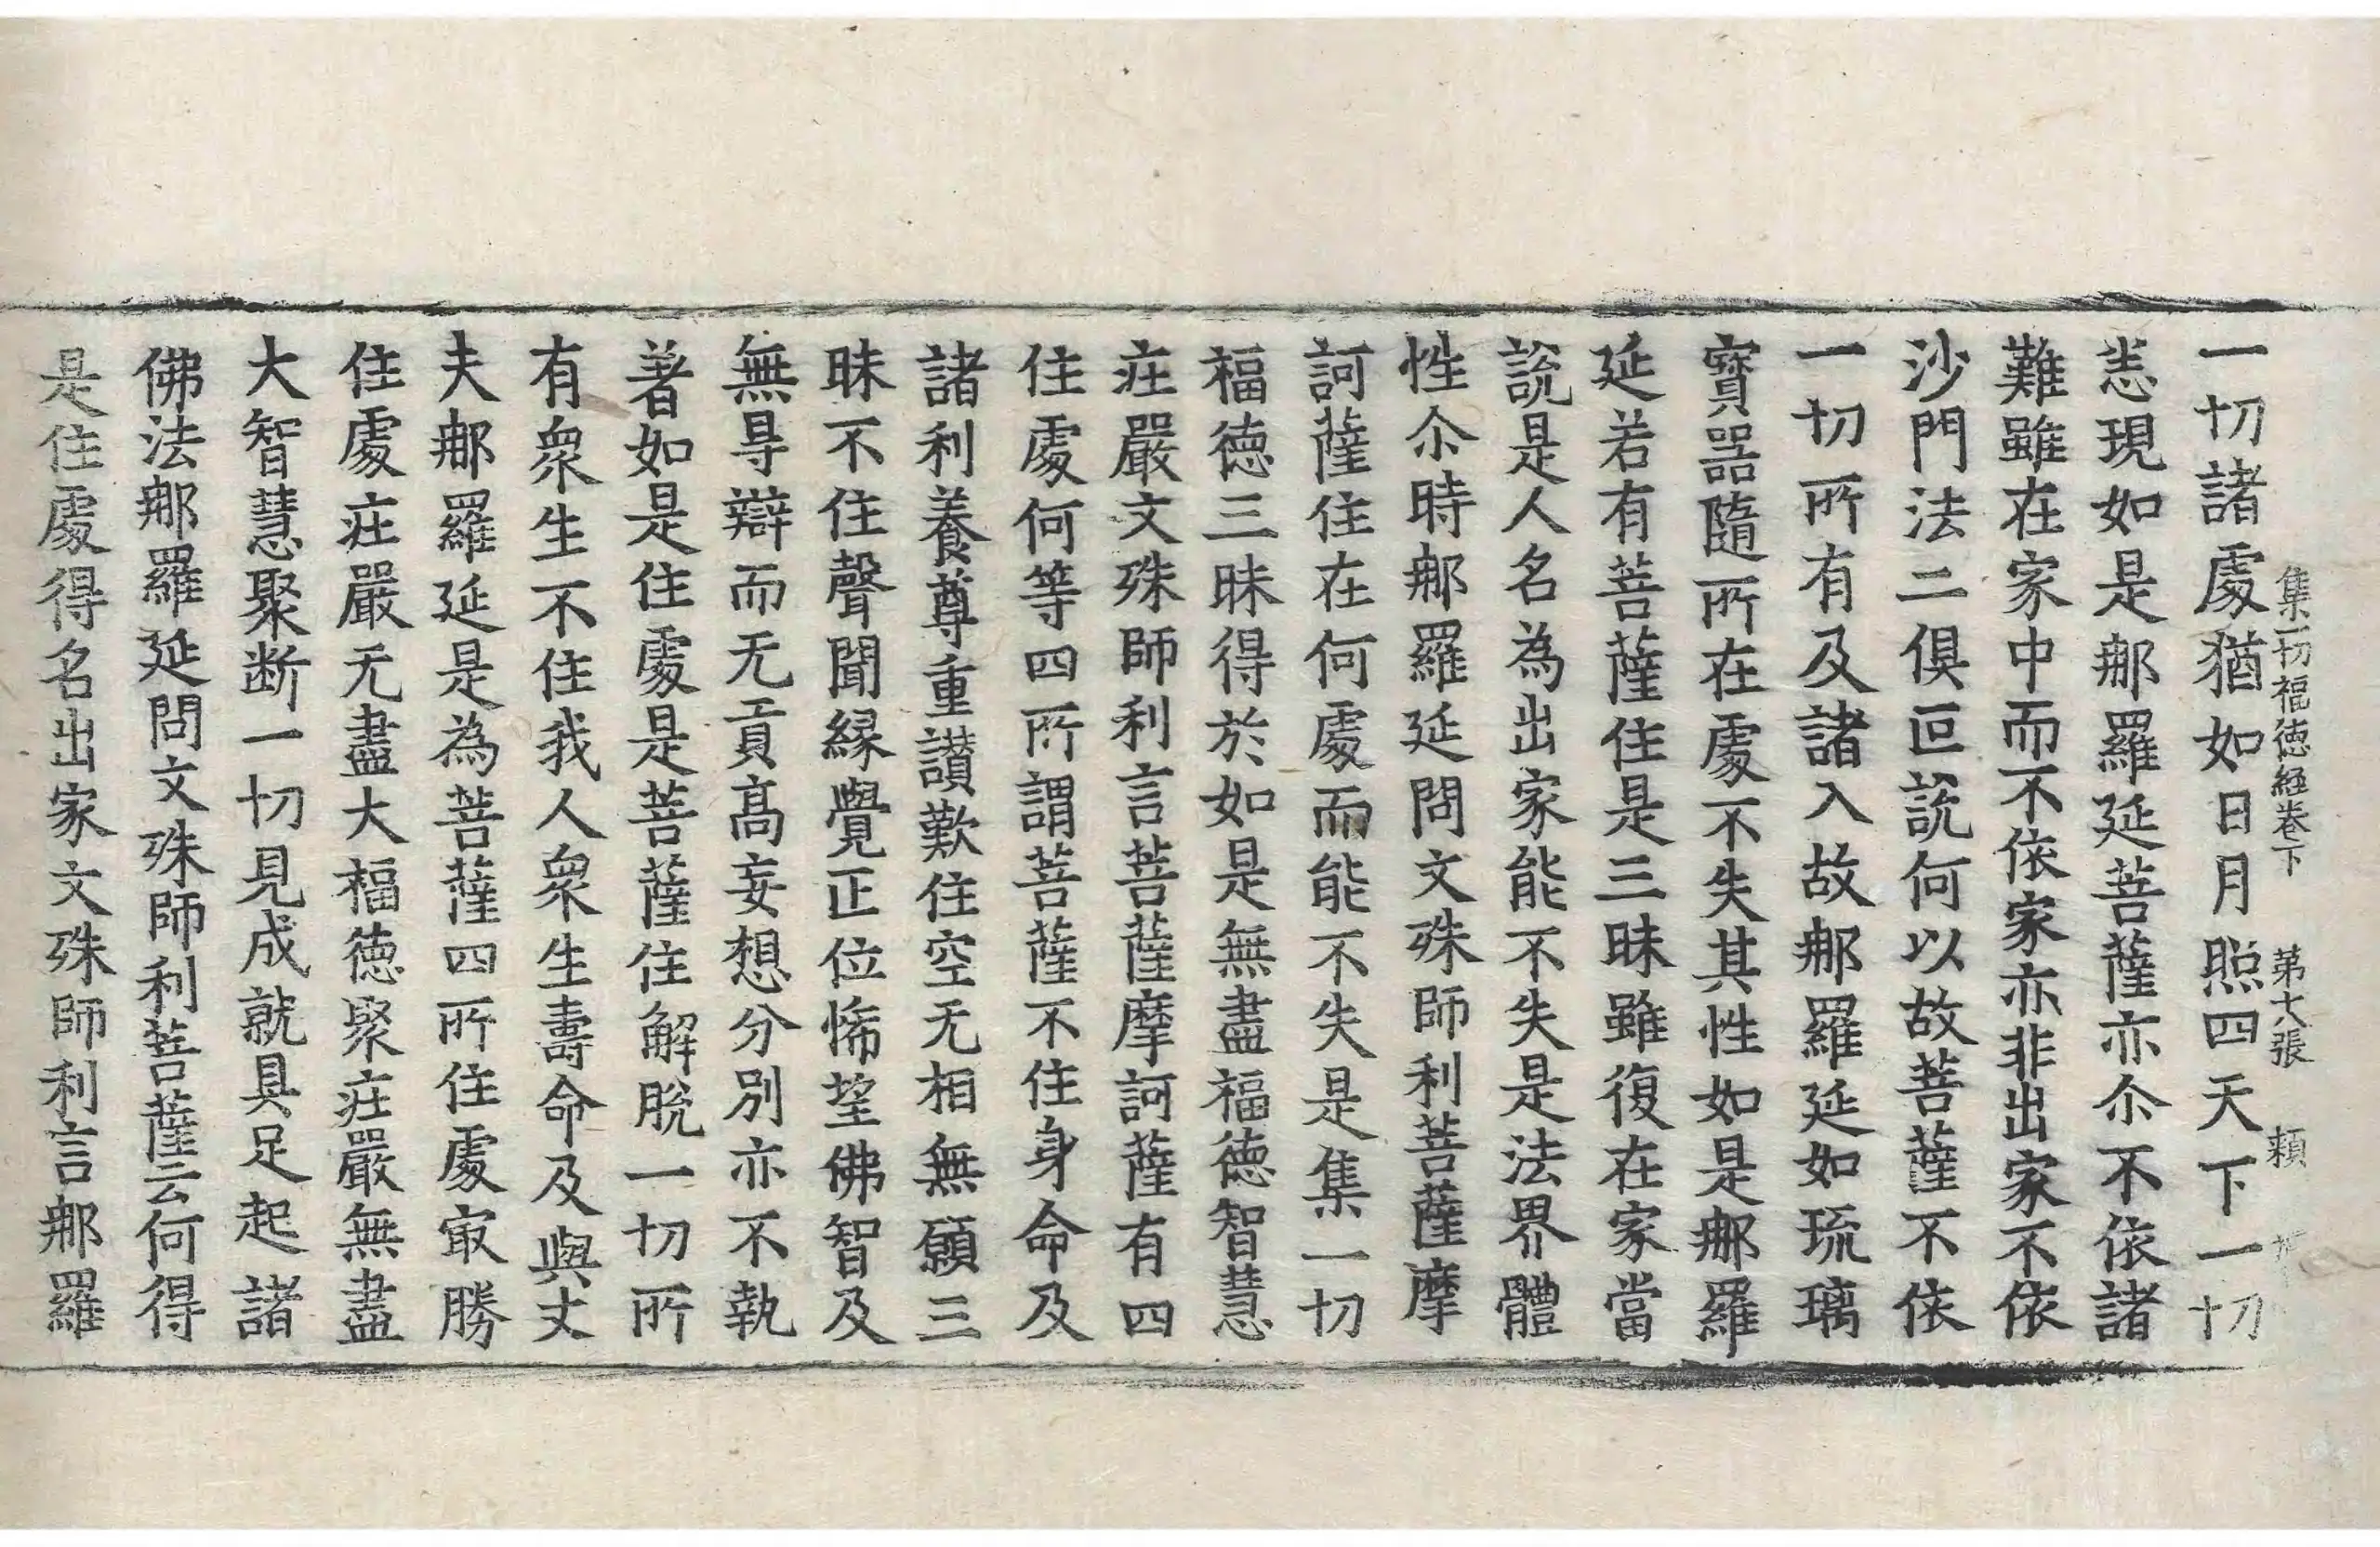 集一切福德經卷下 第七張 頼
一切諸處猶如日月照四天下一切
恙現如是那羅延菩薩亦尒不依諸
難雖在家中而不依家亦非出家不依
沙門法二俱叵說何以故菩薩不依
一切所有及諸入故那羅延如琉璃
寶器隨所在處不失其性如是那羅
延若有菩薩住是三昧雖復在家當
說是人名為出家能不失是法界體
性尒時那羅延問文殊師利菩薩摩
訶薩住在何處而能不失是集一切
福德三昧得於如是無盡福德智慧
莊嚴文殊師利言菩薩摩訶薩有四
住處何等四所謂菩薩不住身命及
諸利養尊重讚歎住空无相無願三
昧不住聲聞緣覺正位悕望佛智及
無㝵辯而无貢高妄想分別亦不執
著如是住處是菩薩住解脫一切所
有衆生不住我人衆生壽命及與丈
夫那羅延是為菩薩四所住處㝡勝
住處莊嚴无盡大福德聚莊嚴無盡
大智慧聚断一切見成就具足起諸
佛法那羅延問文殊師利菩薩云何得
是住處得名出家文殊師利言那羅